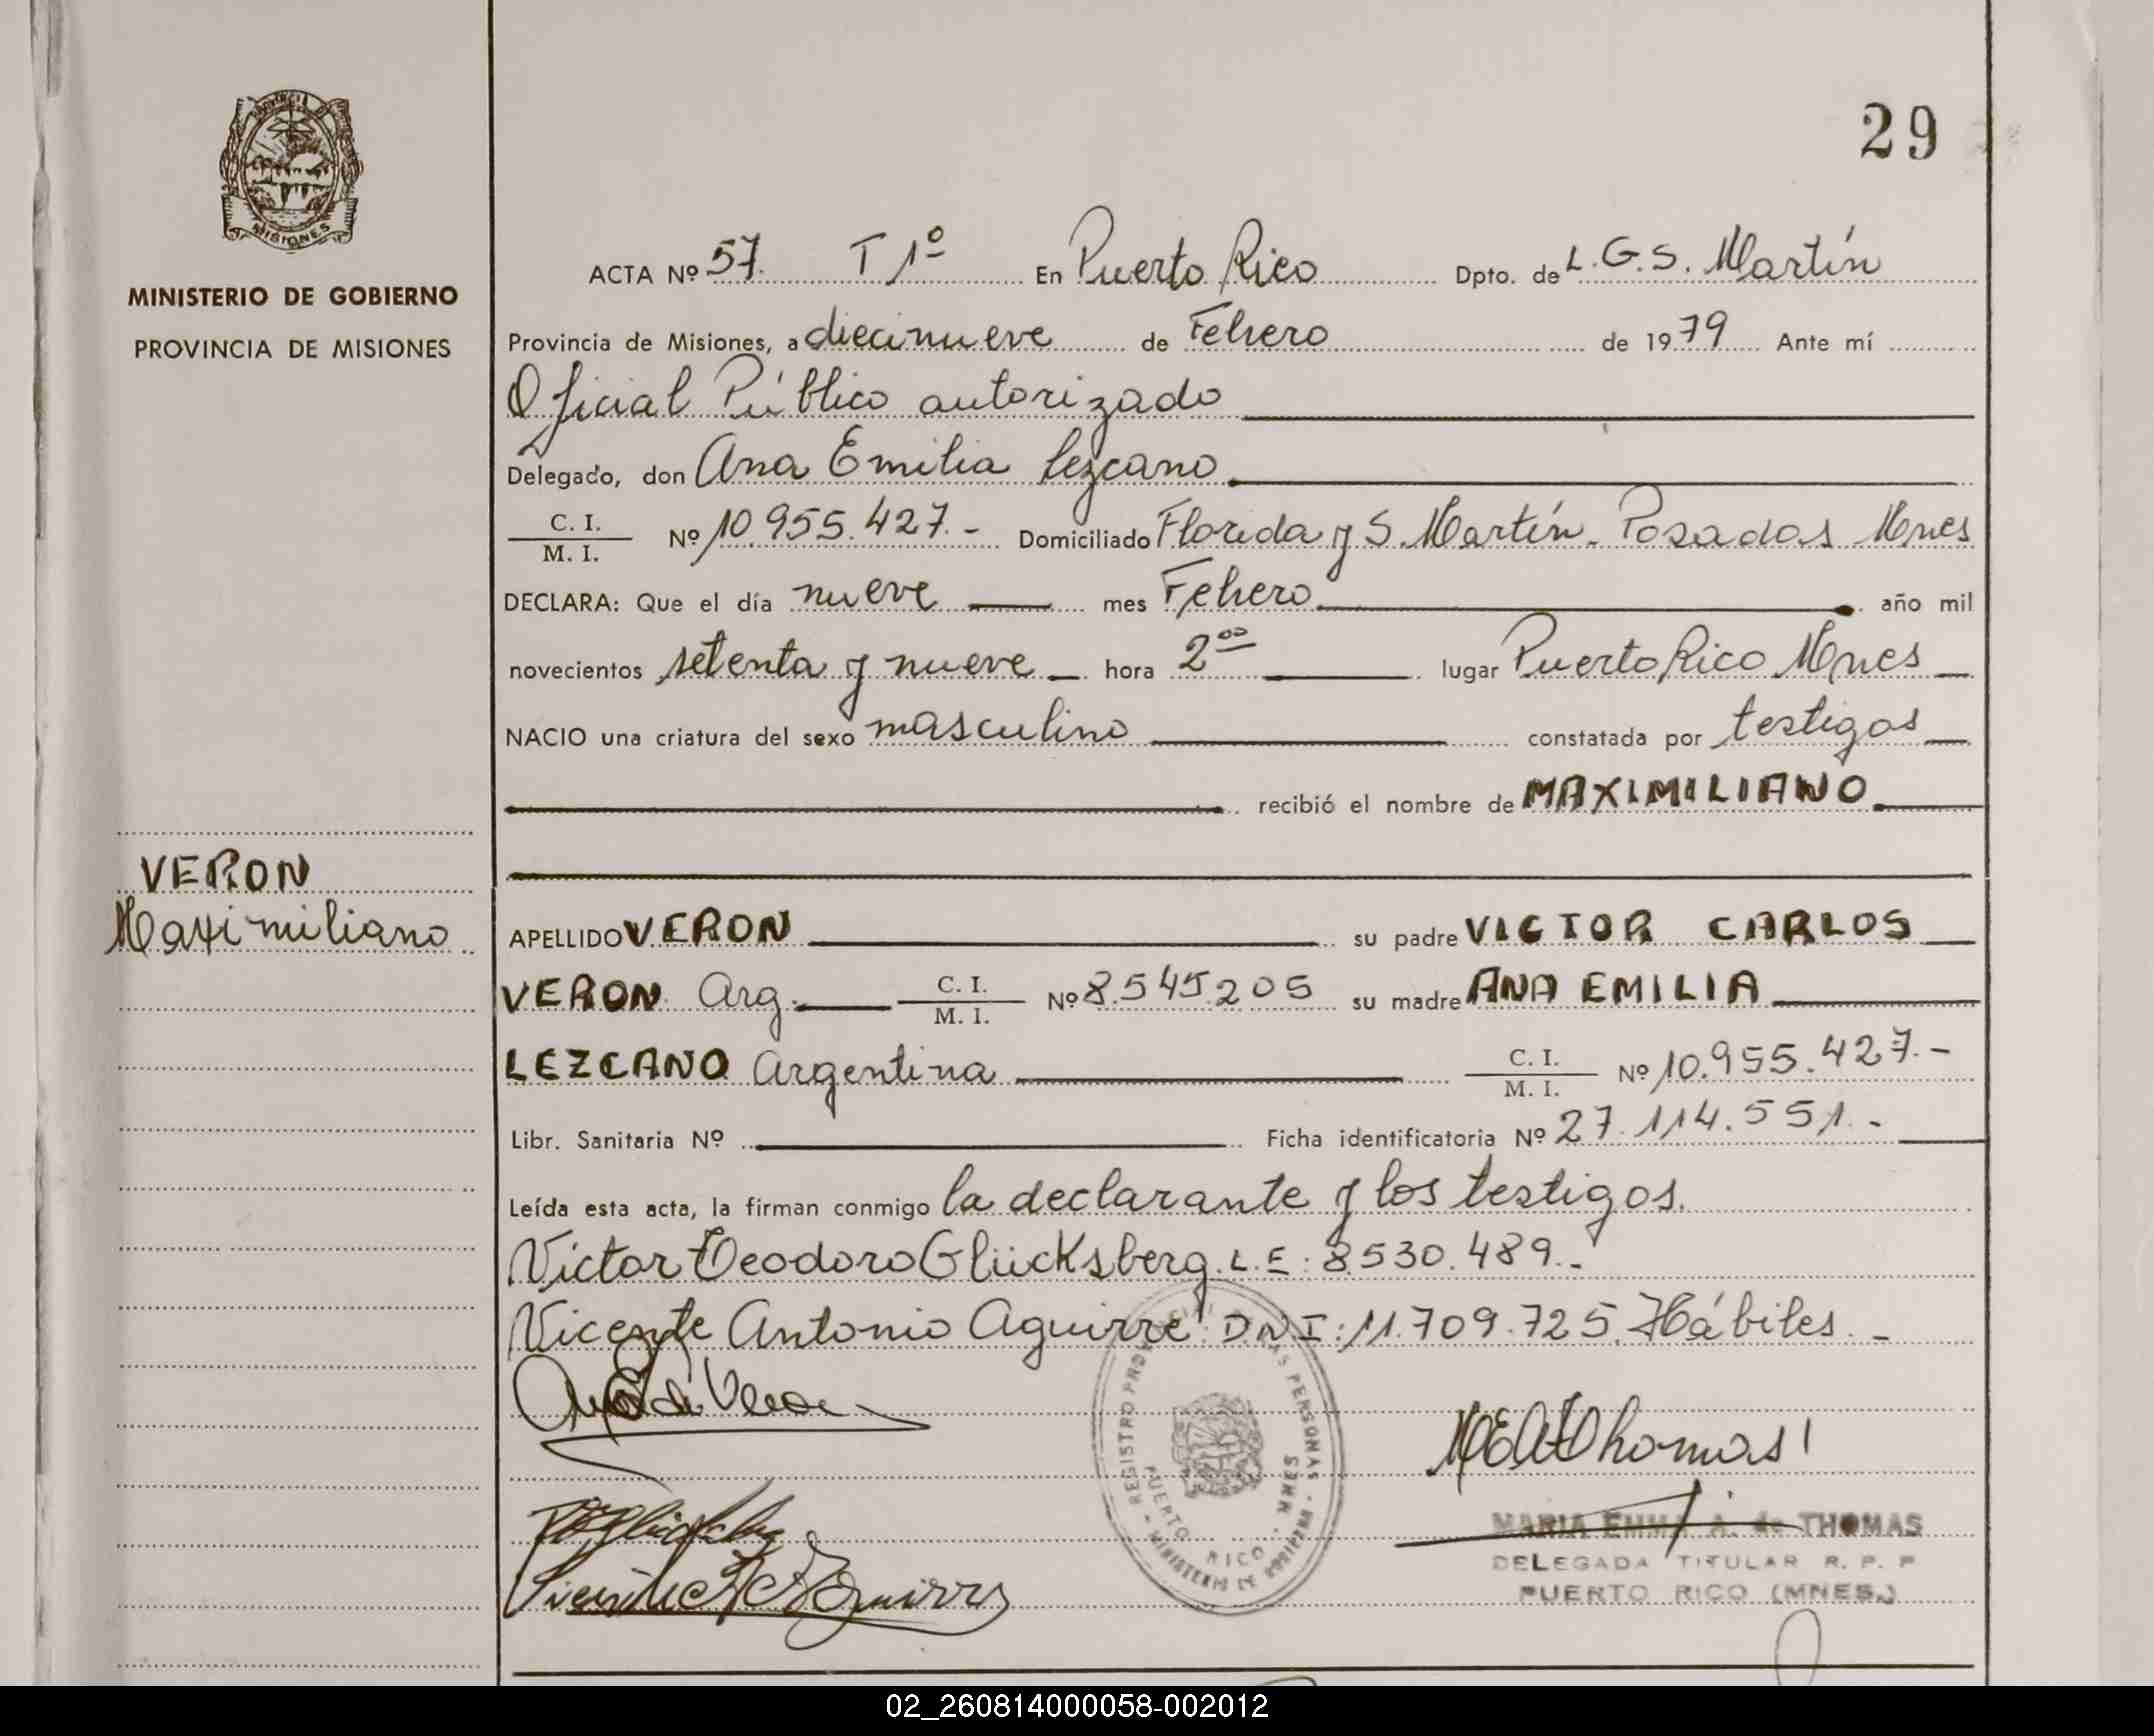 29
MISIONES
MINISTERIO DE GOBIERNO
PROVINCIA DE MISIONES
ACTA Nº 57. T 1º En Puerto Rico Dpto. de L.G.S. Martín
Provincia de Misiones, a diecinueve de Febrero de 1979 Ante mí
Oficial Público autorizado
Delegado, don Ana Emilia Lezcano
C. I.
M. I. Nº 10.955.427.- Domiciliado Florida y S. Martín. Posadas Mnes
DECLARA: Que el día nueve mes Febrero año mil
novecientos setenta y nueve hora 2 00 lugar Puerto Rico Mnes
NACIO una criatura del sexo masculino constatada por testigos
recibió el nombre de MAXIMILIANO
VERON
Maximiliano
APELLIDO VERON su padre VICTOR CARLOS
VERON Arg. C. I. M. I. Nº 8.545.205 su madre ANA EMILIA
LEZCANO Argentina C. I. M. I. Nº 10.955.427.-
Libr. Sanitaria Nº Ficha identificatoria Nº 27.114.551.-
Leída esta acta, la firman conmigo la declarante y los testigos.
Víctor Teodoro Glücksberg. L.E: 8.530.489.-
Vicente Antonio Aguirre DNI: 11.709.725. Hábiles.-
REGISTRO PROVINCIAL DE LAS PERSONAS - MINISTERIO DE GOBIERNO -
PUERTO RICO - MNES
MARIA EMMA A. de THOMAS
DELEGADA TITULAR R. P. P
PUERTO RICO (MNES.)
02_260814000058-002012